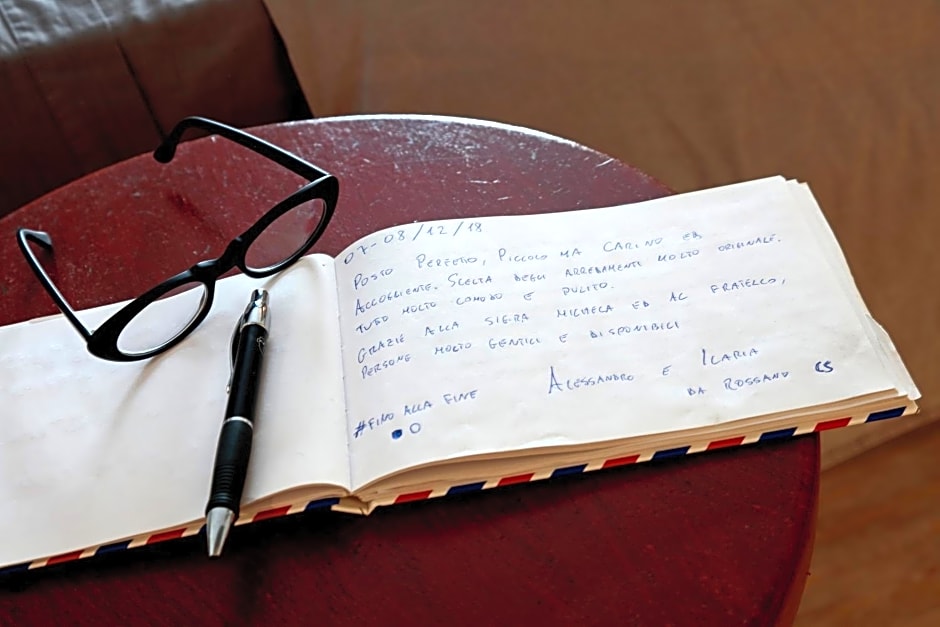 07-08/12/18
POSTO PERFETTO, PICCOLO MA CARINO ED
ACCOGLIENTE. SCELTA DEGLI ARREDAMENTI MOLTO ORIGINALE.
TUTTO MOLTO COMODO E PULITO.
GRAZIE ALLA SIG.RA MICHELA ED AL FRATELLO,
PERSONE MOLTO GENTILI E DISPONIBILI
ALESSANDRO E ILARIA
DA ROSSANO CS
#FINO ALLA FINE